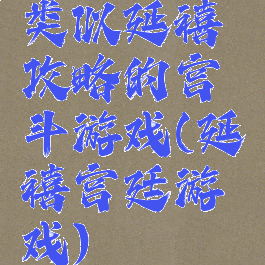 类似延禧
攻略的宫
斗游戏(延
禧宫廷游
戏)